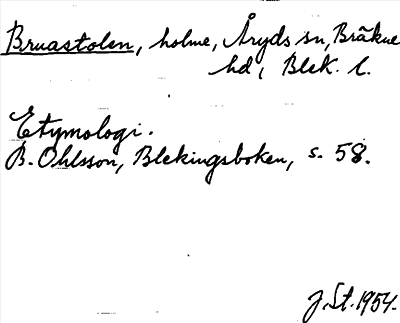 Bruastolen, holme, Åryds sn, Bräkne
hd, Blek. l.
Etymologi.
B. Ohlsson, Blekingsboken, s. 58.
J. St. 1954.